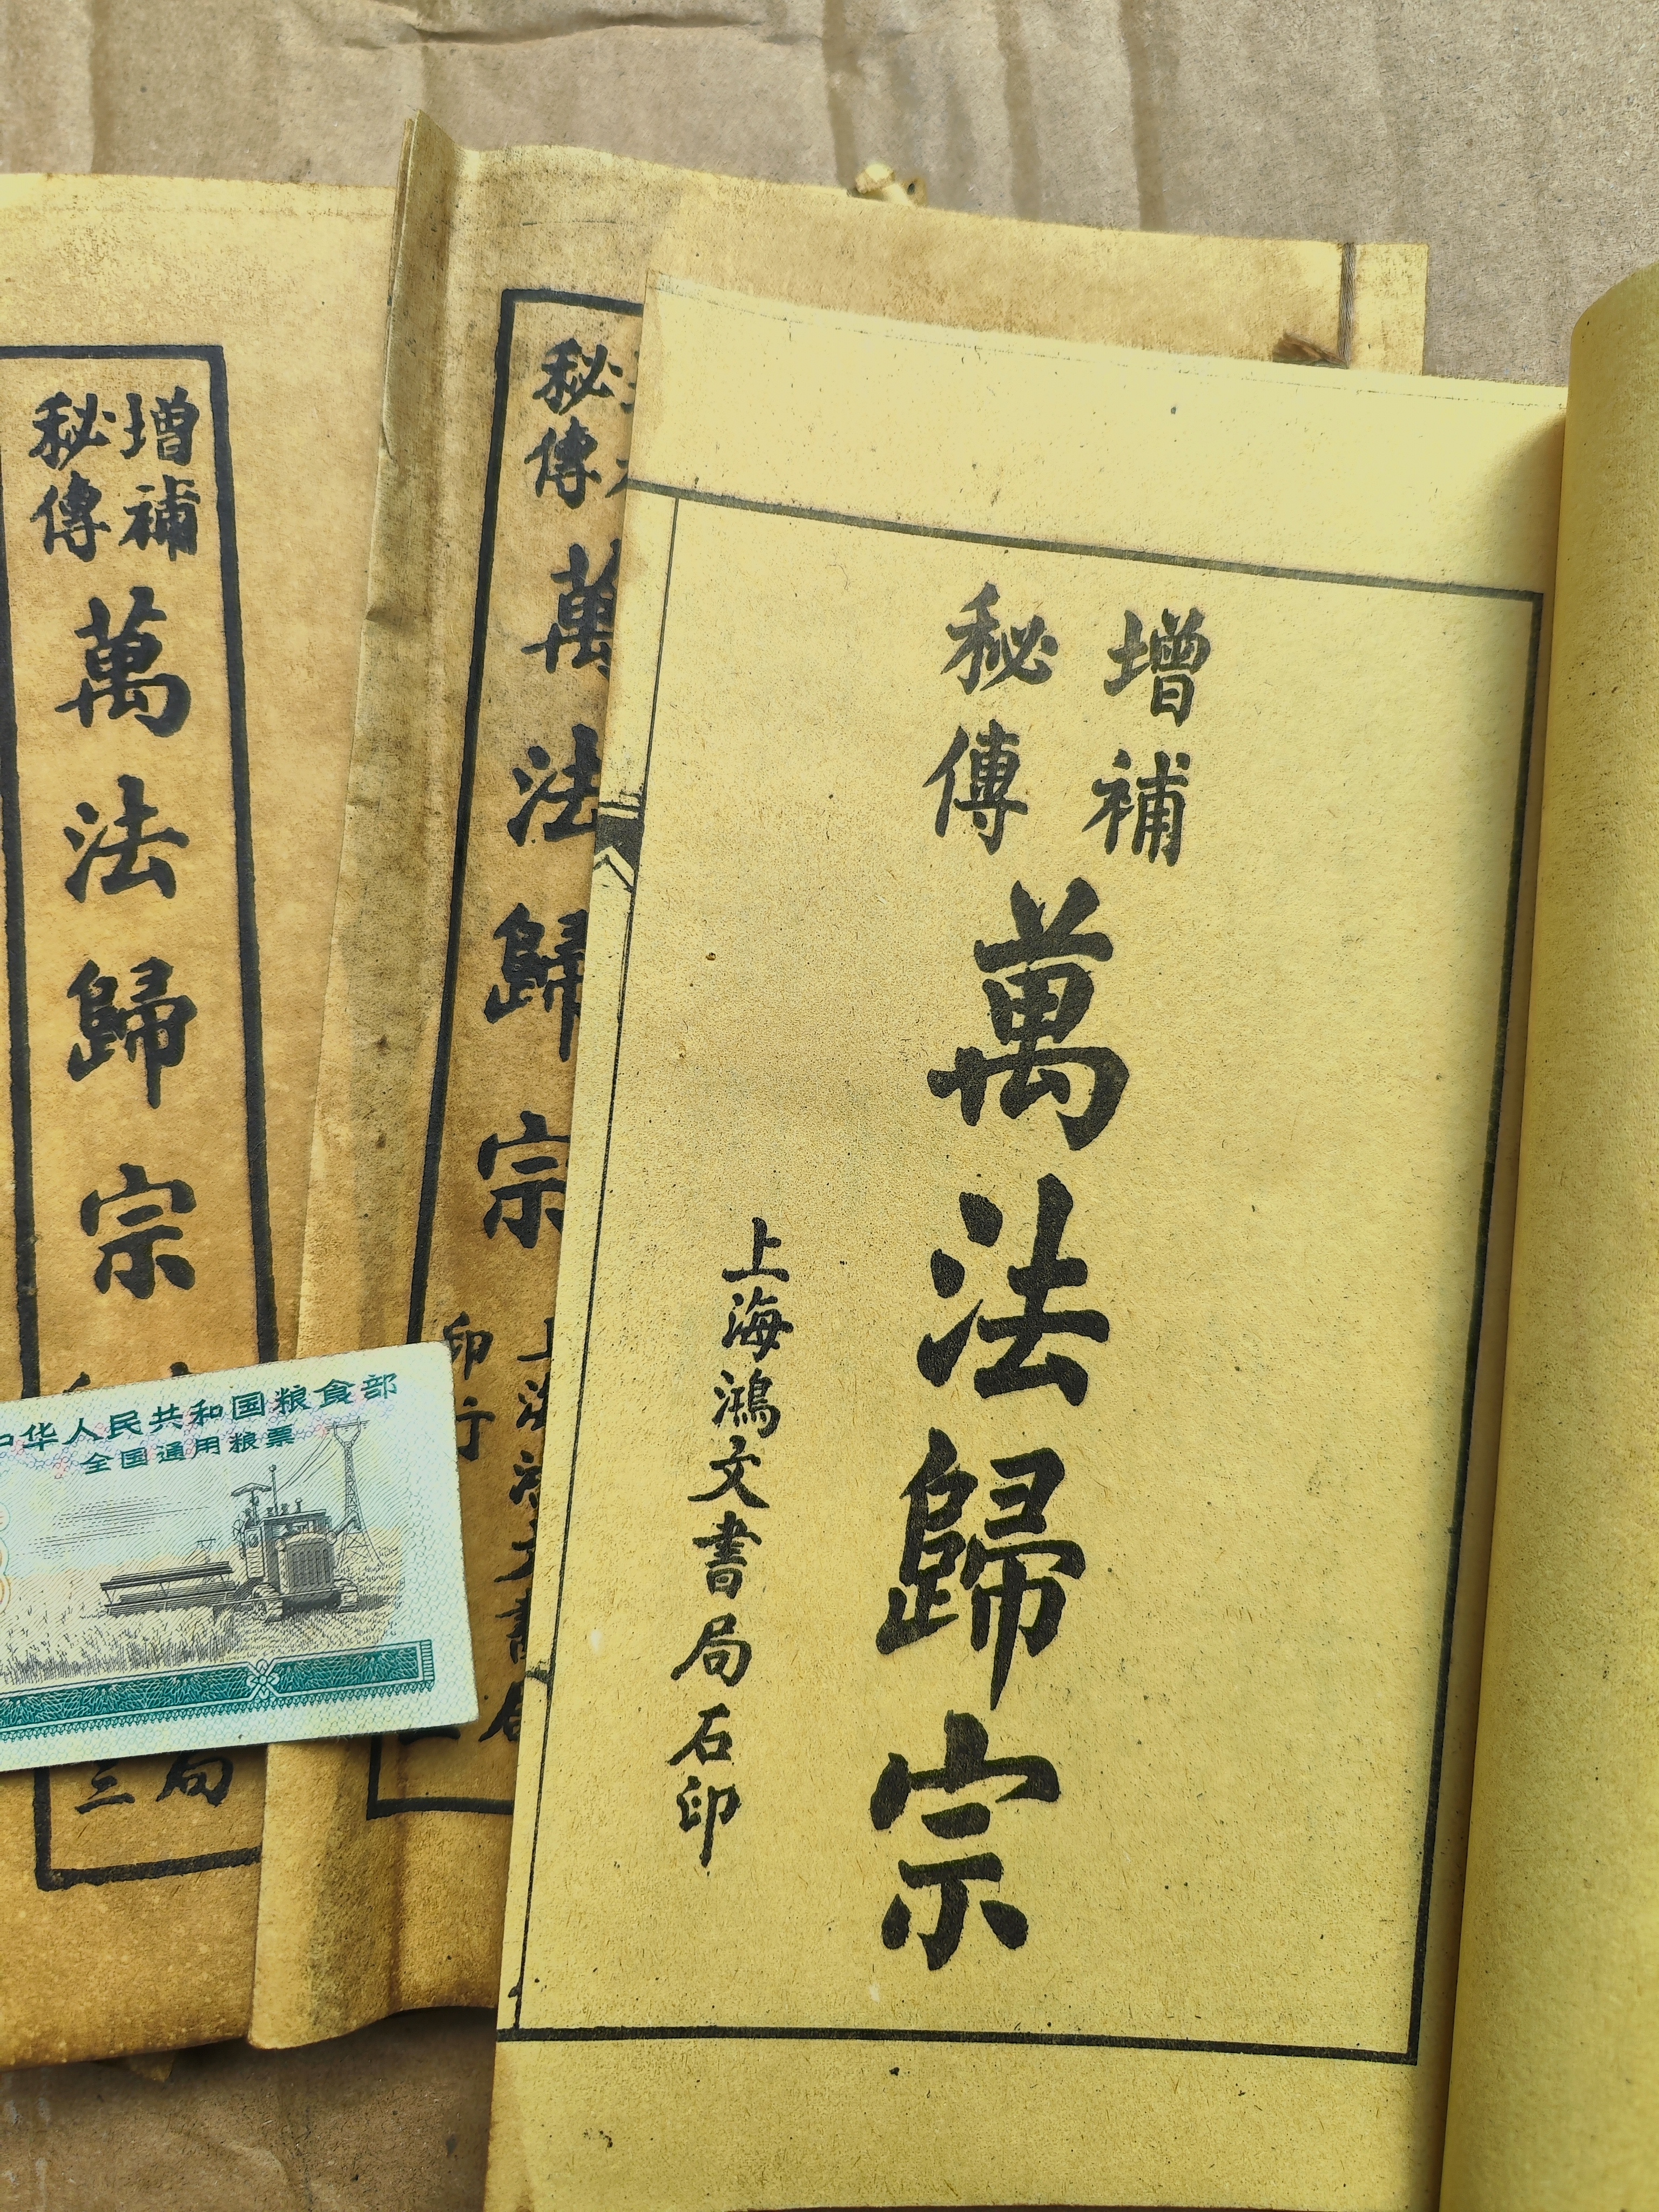 增補
秘傳
萬法歸宗
上海鴻文書局石印
秘
傳
萬法歸宗
印行
增補
秘傳
萬法歸宗
局
三
中华人民共和国粮食部
全国通用粮票